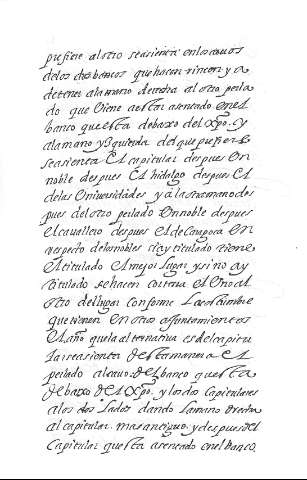 prefiere al otro se asienta en los cavos
de los dos bancos que hacen rincon y a
de tener a la mano derecha al otro perla
do que viene a estar asentado en el
banco que esta debaxo del Xpo. y
a la mano yzquierda del que prefiere
se asienta el capitular despues un
noble despues el hidalgo despues el
de las Universidades y a la otra mano des
pues del otro perlado un noble despues
el cavallero despues el de Çaragoça en
respecto de los nobles si ay titulado tiene
el titulado el mejor lugar y si no ay
titulado se hacen cortesia el uno al
otro del lugar conforme la costumbre
que tienen en otros ajuntamientos
El año que la alternativa es del capitu
lar se asienta desta manera el
perlado al cavo del banco que esta
debaxo del Xpo. y los dos capitulares
a los dos lados dando la mano drecha
al capitular mas antiguo y despues del
capitular que esta asentado en el banco